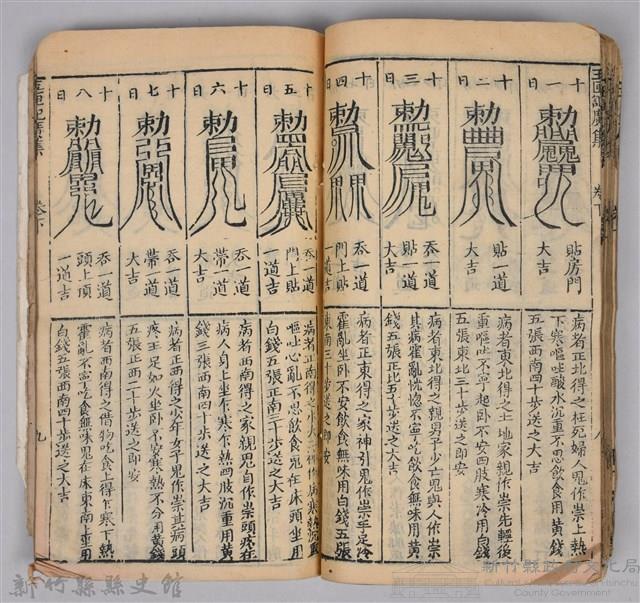 玉匣記廣集
卷下
八
十一日
貼房門
大吉
病者正北得之枉死婦人鬼作祟上熱
下寒嘔吐酸水沉重不思飲食用黃錢
五張西南四十步送之大吉
十二日
貼一道
大吉
病者東北得之土地家親作祟先輕後
重嘔吐不寧起卧不安四肢寒冷用白錢
五張東北三十步送之即安
十三日
吞一道
貼一道
大吉
病者東北得之親男子少亡鬼與人作祟
其病慌惚不寧吃食無味用黃
錢五張正北五十步送之即安
十四日
吞一道
門上貼
一道吉
病者正東得之家神引鬼作祟手足冷
霍亂坐卧不安飲食無味用白錢五張
東南三十步送之即安
十五日
吞一道
門上貼
一道吉
病者正南得之
嘔吐心亂不思飲食鬼在床頭坐用
白錢五張正南三十步送之大吉
十六日
吞一道
帶一道
大吉
病者西南得之家親鬼自作祟頭疼在
病人身上坐乍寒乍熱四肢沉重用黃
錢三張西南四十步送之大吉
十七日
吞一道
帶一道
大吉
病者正西得之少年女子鬼作祟其病頭
疼手足如火坐卧不安寒熱不分用黃錢
五張正西二十步送之即安
十八日
吞一道
頭上頂
一道吉
病者西南得之惜物吃食上得乍寒下熱
霍亂不寧吃食無味鬼在床東南上坐用
白錢五張西南四十步送之大吉
玉匣記廣集
卷下
九
新竹縣縣史館
新竹縣政府文化局